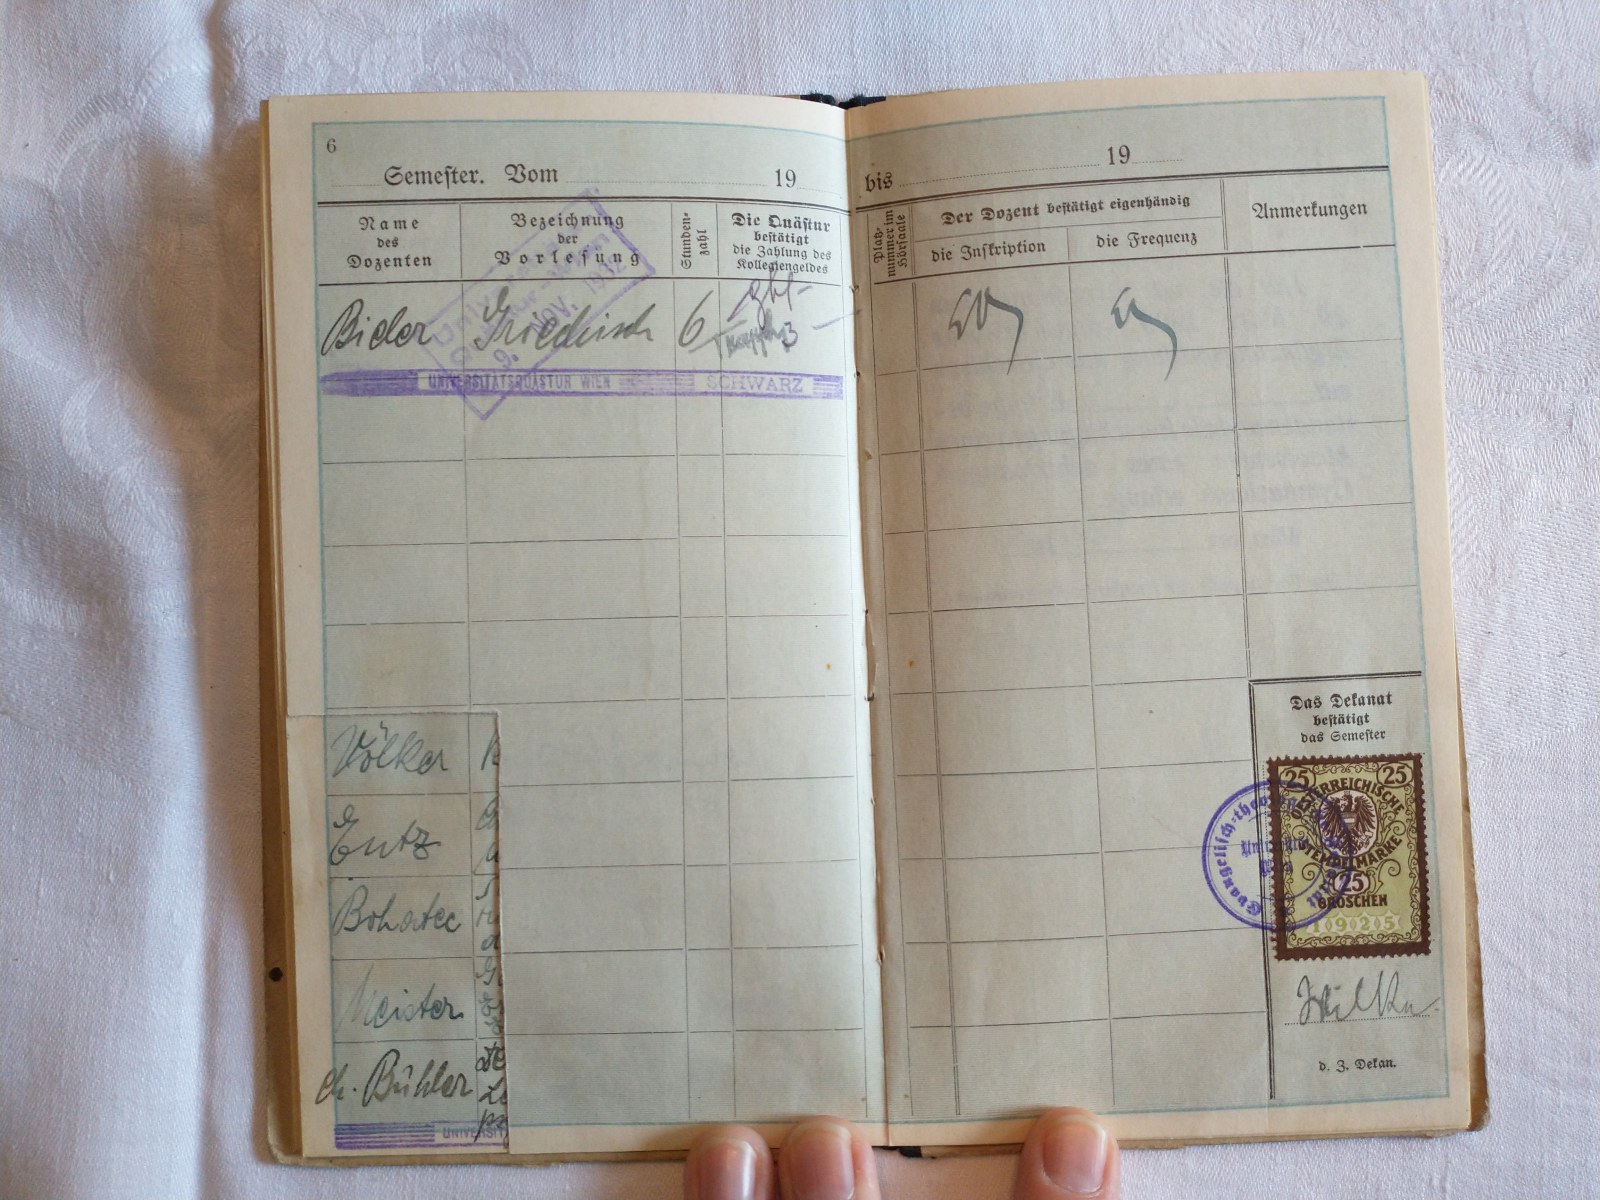 6
Semester. Vom 19
bis 19
Name
des
Dozenten
Bezeichnung
der
Vorlesung
Stunden-
zahl
Die Quästur
bestätigt
die Zahlung des
Kollegiengeldes
Platz-
nummer im
Hörsaale
Der Dozent bestätigt eigenhändig
die Inskription
die Frequenz
Anmerkungen
Bieler Griechisch 6
UNIVERSITÄTSQUÄSTUR WIEN SCHWARZ
Völker
Entz
Bohatec
Meister
Ch. Bühler
UNIVERSIT
Das Dekanat
bestätigt
das Semester
25 25
ÖSTERREICHISCHE
STEMPELMARKE
25
GROSCHEN
1925
Evangelisch-theo
d. Z. Dekan.